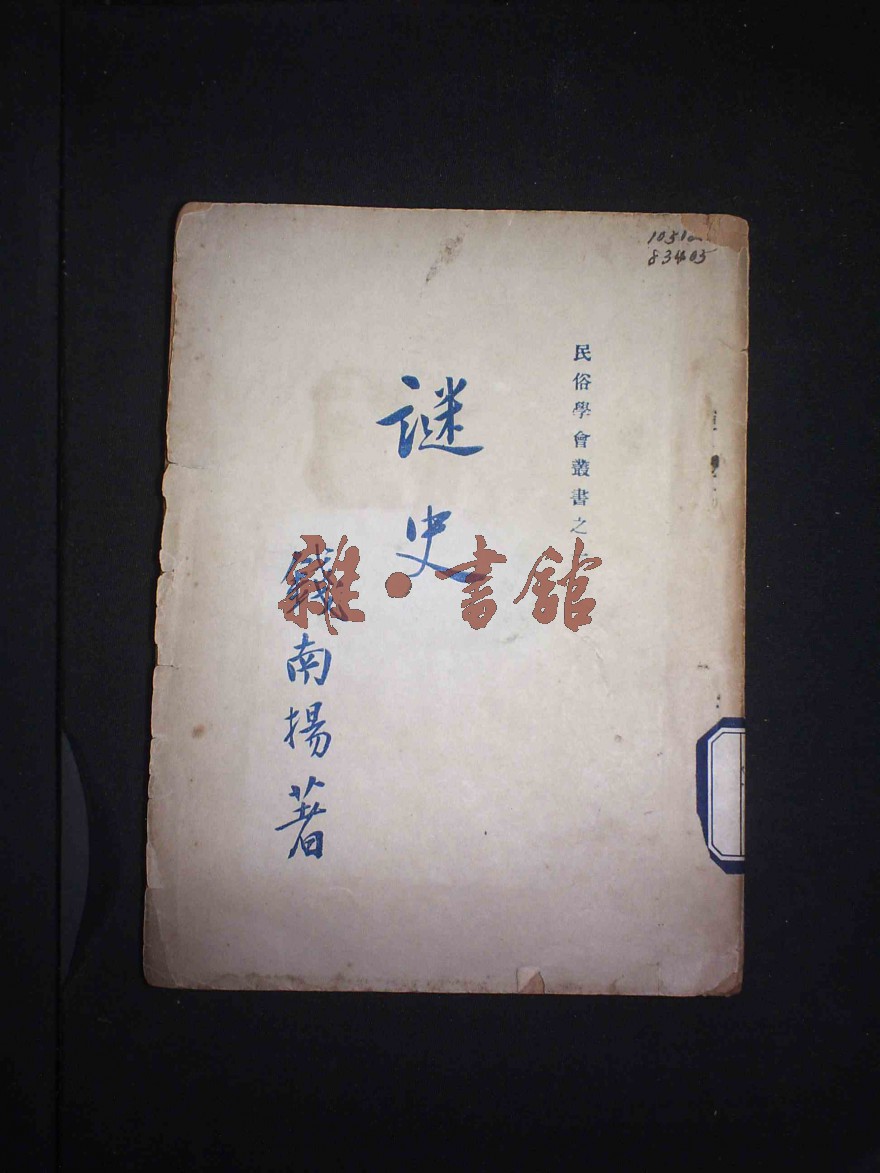 民俗學會叢書之
謎史
錢南揚著
雜·書館